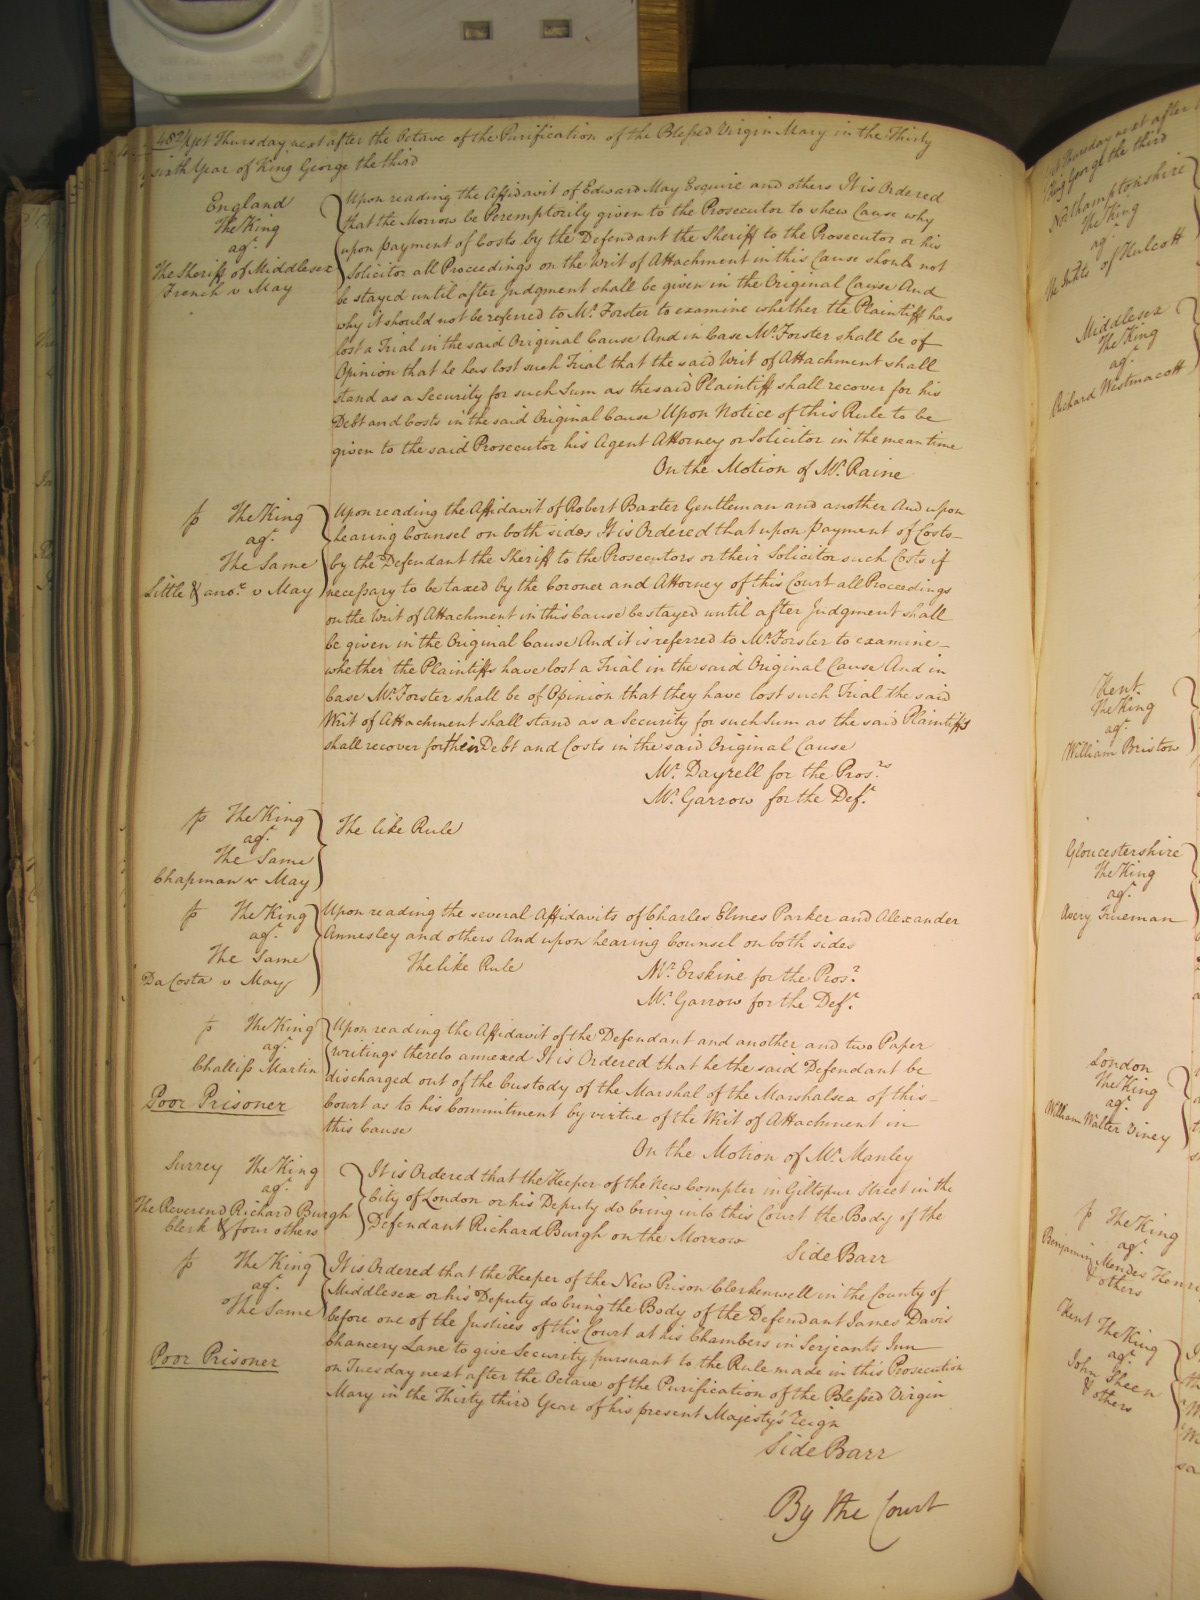 482 Yet Thursday next after the Octave of the Purification of the Blessed Virgin Mary in the Thirty
sixth Year of King George the third
England
The King
agt.
The Sheriff of Middlesex
French v May
Upon reading the Affidavit of Edward May Esquire and others It is Ordered
that the Morrow be Peremptorily given to the Prosecutor to shew Cause why
upon payment of Costs by the Defendant the Sheriff to the Prosecutor or his
Solicitor all Proceedings on the Writ of Attachment in this Cause should not
be stayed until after Judgment shall be given in the Original Cause And
why it should not be referred to Mr. Forster to examine whether the Plaintiff has
lost a Trial in the said Original Cause And in Case Mr. Forster shall be of
Opinion that he has lost such Trial that the said Writ of Attachment shall
stand as a Security for such Sum as the said Plaintiff shall recover for his
Debt and Costs in the said Original Cause Upon Notice of this Rule to be
given to the said Prosecutor his Agent Attorney or Solicitor in the mean time
On the Motion of Mr. Raine
The King
agt.
The Same
Little & anor. v May
Upon reading the Affidavit of Robert Baxter Gentleman and another And upon
hearing Counsel on both sides It is Ordered that upon payment of Costs
by the Defendant the Sheriff to the Prosecutors or their Solicitor such Costs if
necessary to be taxed by the Coroner and Attorney of this Court all Proceedings
on the Writ of Attachment in this Cause be stayed until after Judgment shall
be given in the Original Cause And it is referred to Mr. Forster to examine
whether the Plaintiffs have lost a Trial in the said Original Cause And in
Case Mr. Forster shall be of Opinion that they have lost such Trial the said
Writ of Attachment shall stand as a Security for such Sum as the said Plaintiffs
shall recover for their Debt and Costs in the said Original Cause
Mr. Dayrell for the Pros.rs
Mr. Garrow for the Deft.
The King
agt.
The Same
Chapman v May
The like Rule
The King
agt.
The Same
Da Costa v May
Upon reading the several Affidavits of Charles Elmes Parker and Alexander
Annesley and others And upon hearing Counsel on both sides
The like Rule
Mr. Erskine for the Pros.r
Mr. Garrow for the Deft.
The King
agt.
Challiss Martin
Poor Prisoner
Upon reading the Affidavit of the Defendant and another and two Paper
writings thereto annexed It is Ordered that he the said Defendant be
discharged out of the Custody of the Marshal of the Marshalsea of this
Court as to his Commitment by virtue of the Writ of Attachment in
this Cause
On the Motion of Mr. Manley
Surrey The King
agt.
The Reverend Richard Burgh
Clerk & four others
It is Ordered that the Keeper of the New Compter in Giltspur Street in the
City of London or his Deputy do bring into this Court the Body of the
Defendant Richard Burgh on the Morrow
Side Barr
The King
agt.
The Same
Poor Prisoner
It is Ordered that the Keeper of the New Prison Clerkenwell in the County of
Middlesex or his Deputy do bring the Body of the Defendant James Davis
before one of the Justices of this Court at his Chambers in Serjeants Inn
Chancery Lane to give Security pursuant to the Rule made in this Prosecution
on Tuesday next after the Octave of the Purification of the Blessed Virgin
Mary in the Thirty third Year of his present Majesty's Reign
Side Barr
By the Court
Thursday next after
King George the third
Northamptonshire
The King
agt.
of Hulcott
Middlesex
The King
agt.
Richard Westmacott
Kent
The King
agt.
William Bristow
Gloucestershire
The King
agt.
Avery Trueman
London
The King
agt.
William Walter Viney
The King
agt.
Benjamin Mendes Henri
& others
Kent The King
agt.
John Sheen
& others